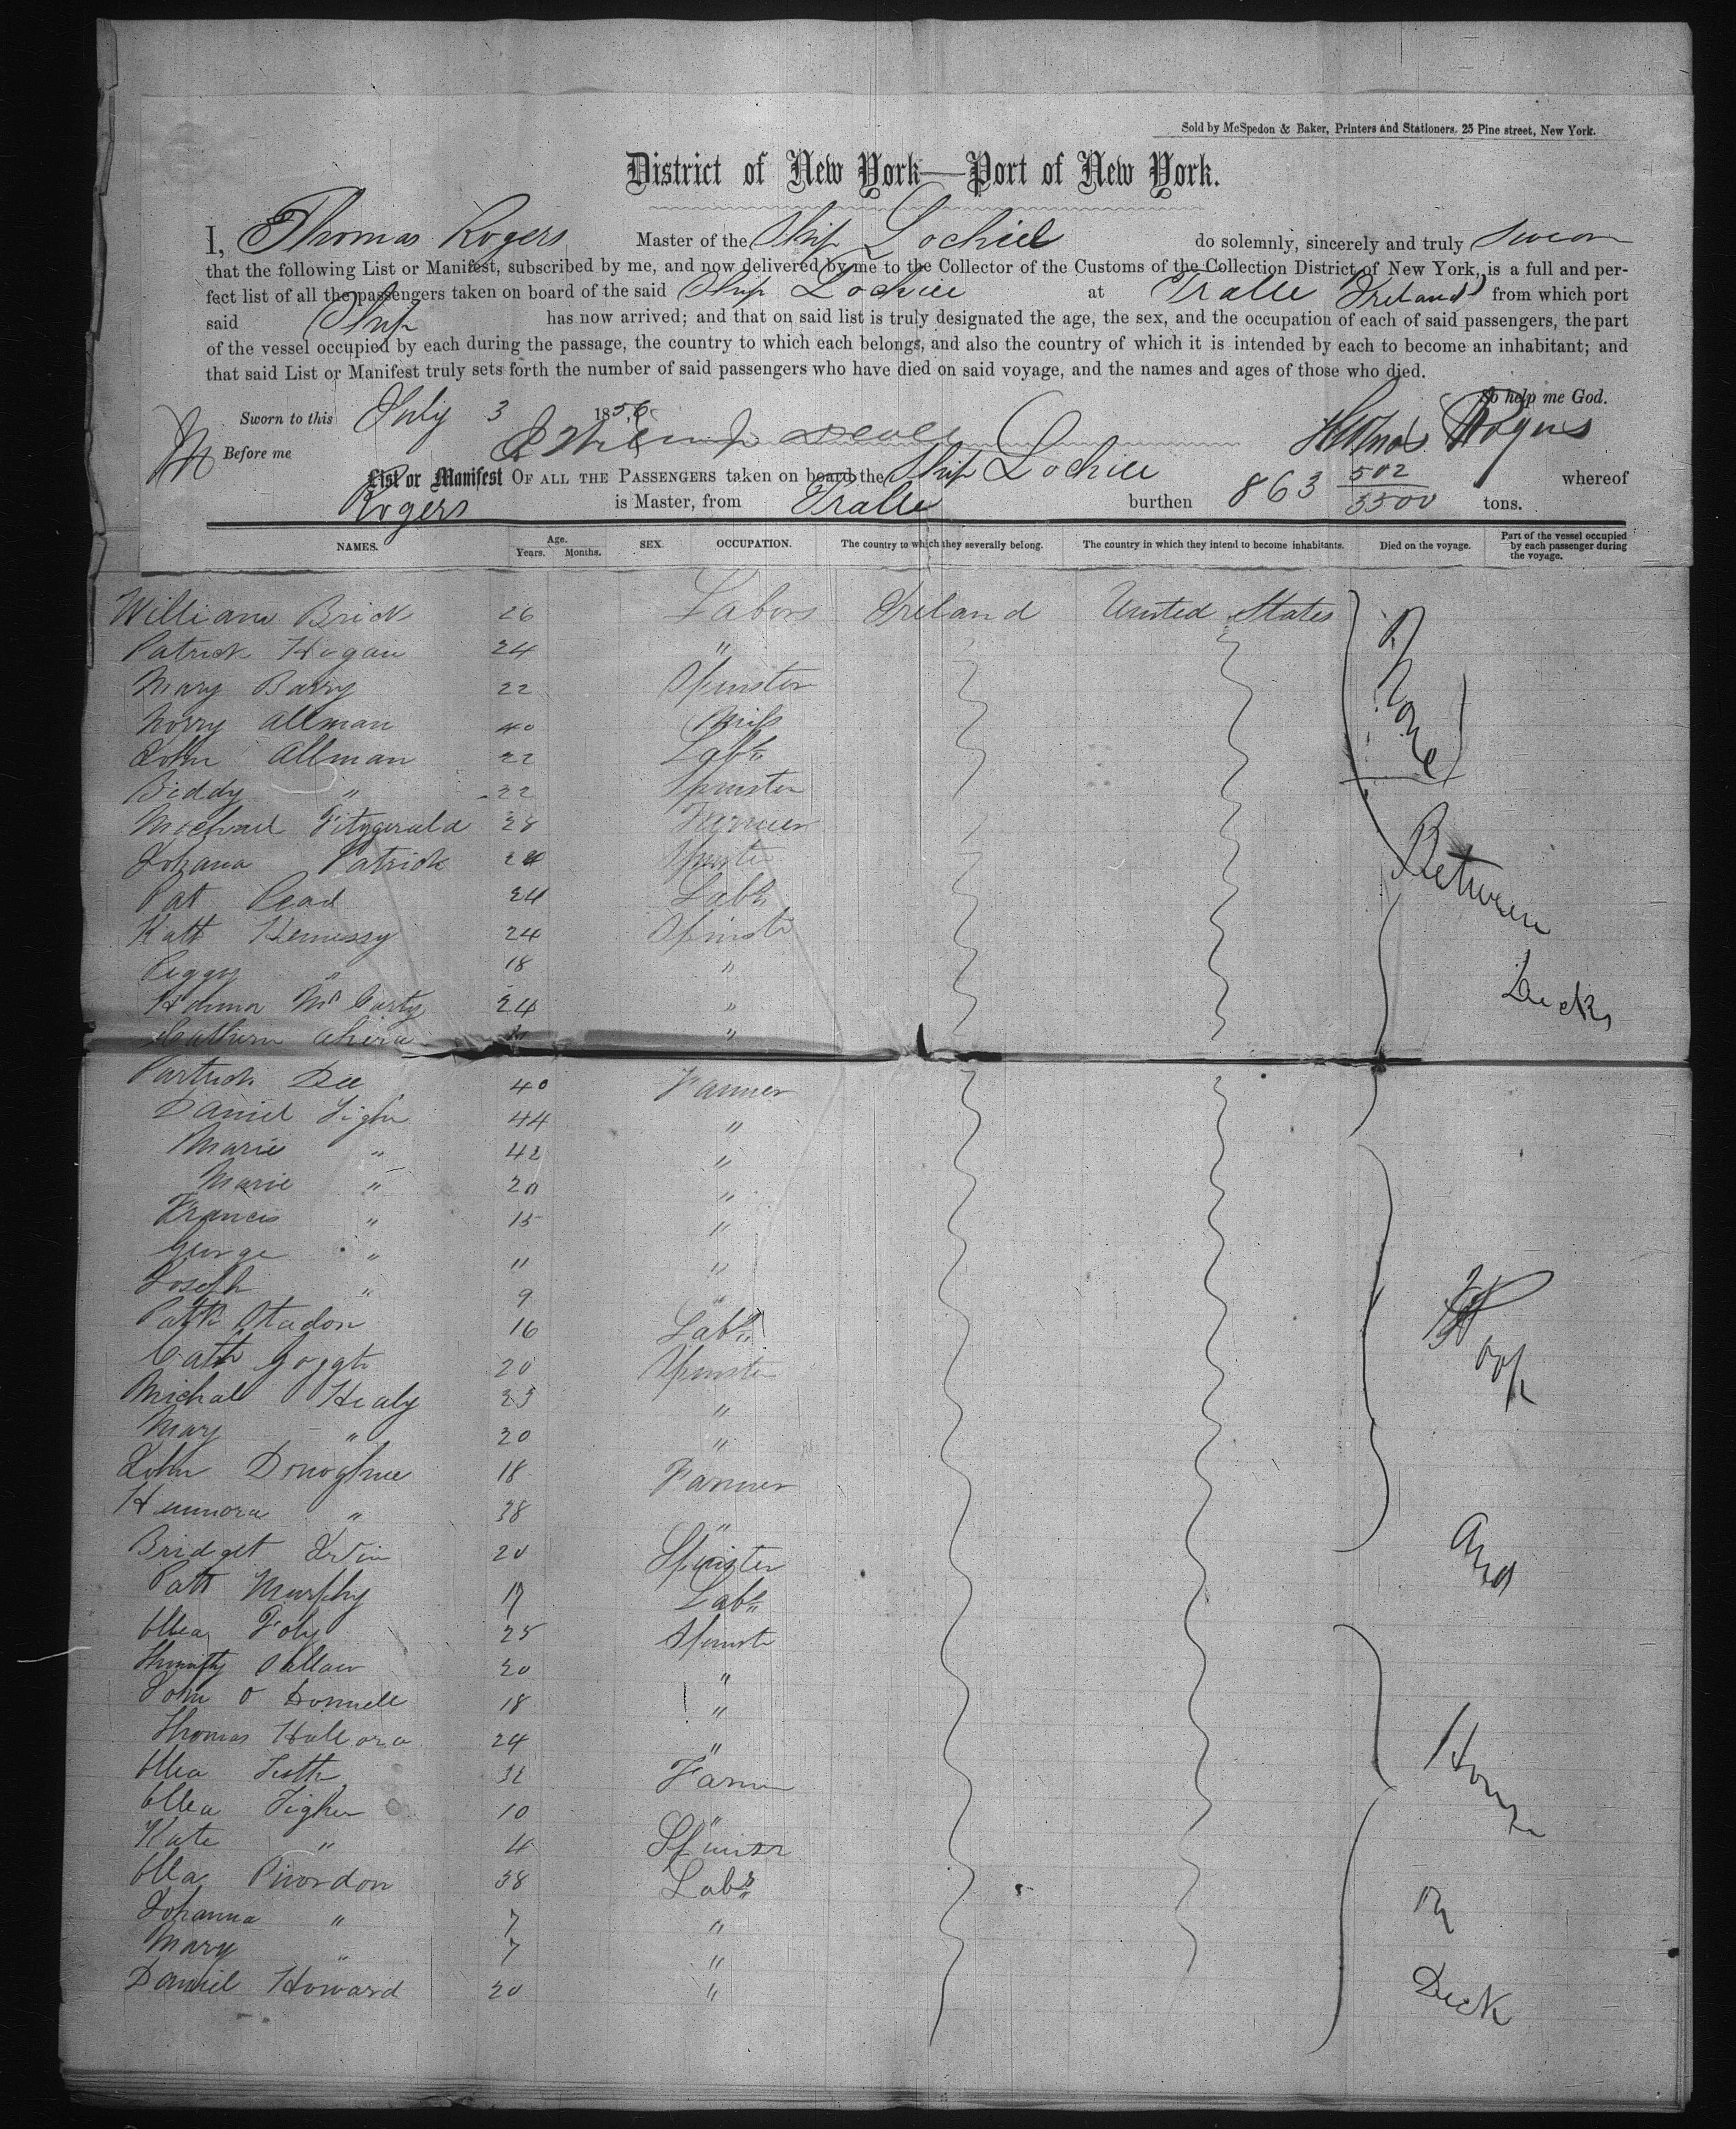 Sold by McSpedon & Baker, Printers and Stationers. 25 Pine street, New York.
District of New York—Port of New York.
I, Thomas Rogers Master of the Ship Lochiel do solemnly, sincerely and truly swear
that the following List or Manifest, subscribed by me, and now delivered by me to the Collector of the Customs of the Collection District of New York, is a full and per-
fect list of all the passengers taken on board of the said Ship Lochiel at Tralle Ireland from which port
said Ship has now arrived; and that on said list is truly designated the age, the sex, and the occupation of each of said passengers, the part
of the vessel occupied by each during the passage, the country to which each belongs, and also the country of which it is intended by each to become an inhabitant; and
that said List or Manifest truly sets forth the number of said passengers who have died on said voyage, and the names and ages of those who died.
So help me God.
Sworn to this July 3 1856
Before me Thomas Rogers
List or Manifest OF ALL THE PASSENGERS taken on board the Ship Lochiel whereof
Rogers is Master, from Tralle burthen 863 502/5500 tons.
NAMES. Age. Years. Months. SEX. OCCUPATION. The country to which they severally belong. The country in which they intend to become inhabitants. Died on the voyage. Part of the vessel occupied by each passenger during the voyage.
William Brick 26 Labors Ireland United States None
Patrick Hogan 24 "
Mary Barry 22 Spinster
Norry Allman 40 Miss
John Allman 22 Labr
Biddy " 22 Spinster
Michael Fitzgerald 28 Farmer Between
Johana Patrick 24 Spinster
Pat Read 24 Labr
Katt Hennessy 24 Spinstr
Peggy " 18 " Decks
Hanna McCarty 24 "
Cathern "
Partrick Dee 40 Farmer
Daniel Tighe 44 "
Marie " 42 "
Marie " 20 "
Francis " 15 "
George " 11 "
Joseph " 9 "
Pattk 16 Labr
Cath 20 Spinster
Michal Healy 23 "
Mary " 20 "
John Donoghue 18 Farmer
Hennora " 38 " and
Bridget 20 Spinster
Patt Murphy 17 Labr
Foly 25 Spinstr
20 "
John O Donnell 18 "
Thomas Hallora 24 " House
32 Farmer
Tighe 10 "
Kate " 4 Spinsr
38 Labr
Johanna " 7 " on
Mary " 7 "
Daniel Howard 20 " Deck